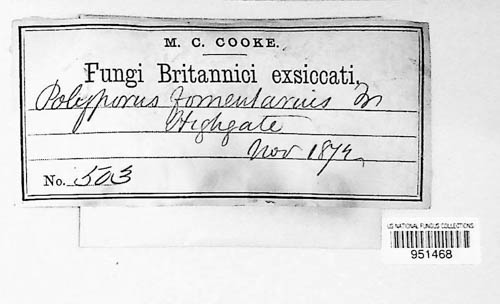 M. C. COOKE.
Fungi Britannici exsiccati,
Polyporus fomentarius Fr
Highgate
Nov 1874,
No. 503
US NATIONAL FUNGUS COLLECTIONS
951468